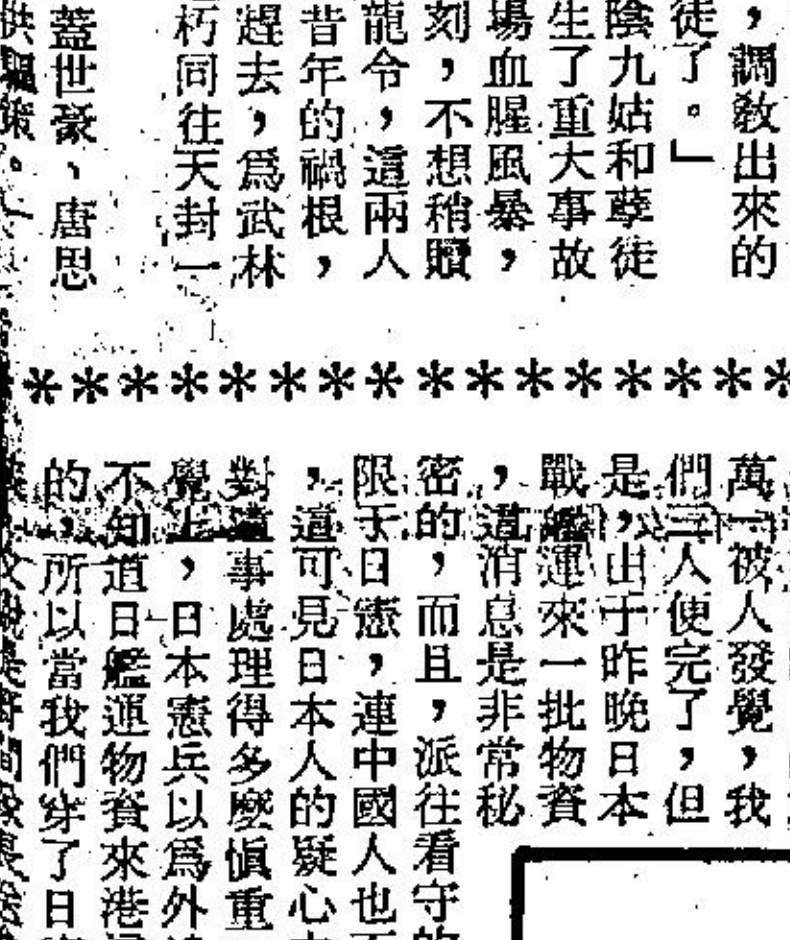 ，調教出來的
徒了。」
陰九姑和孽徒
生了重大事故
場血腥風暴，
刻，不想稍贖
龍令，這兩人
昔年的禍根，
趕去，爲武林
朽同往天封一
蓋世豪、唐思
供驅策。
****************
萬一被人發覺，我
們三人便完了，但
是，由于昨晚日本
戰艦運來一批物資
，這消息是非常秘
密的，而且，派往看守的
限于日憲，連中國人也不
，這可見日本人的疑心
對這事處理得多麼愼重
覺上，日本憲兵以爲外
不知道日艦運物資來港
的，所以當我們穿了日